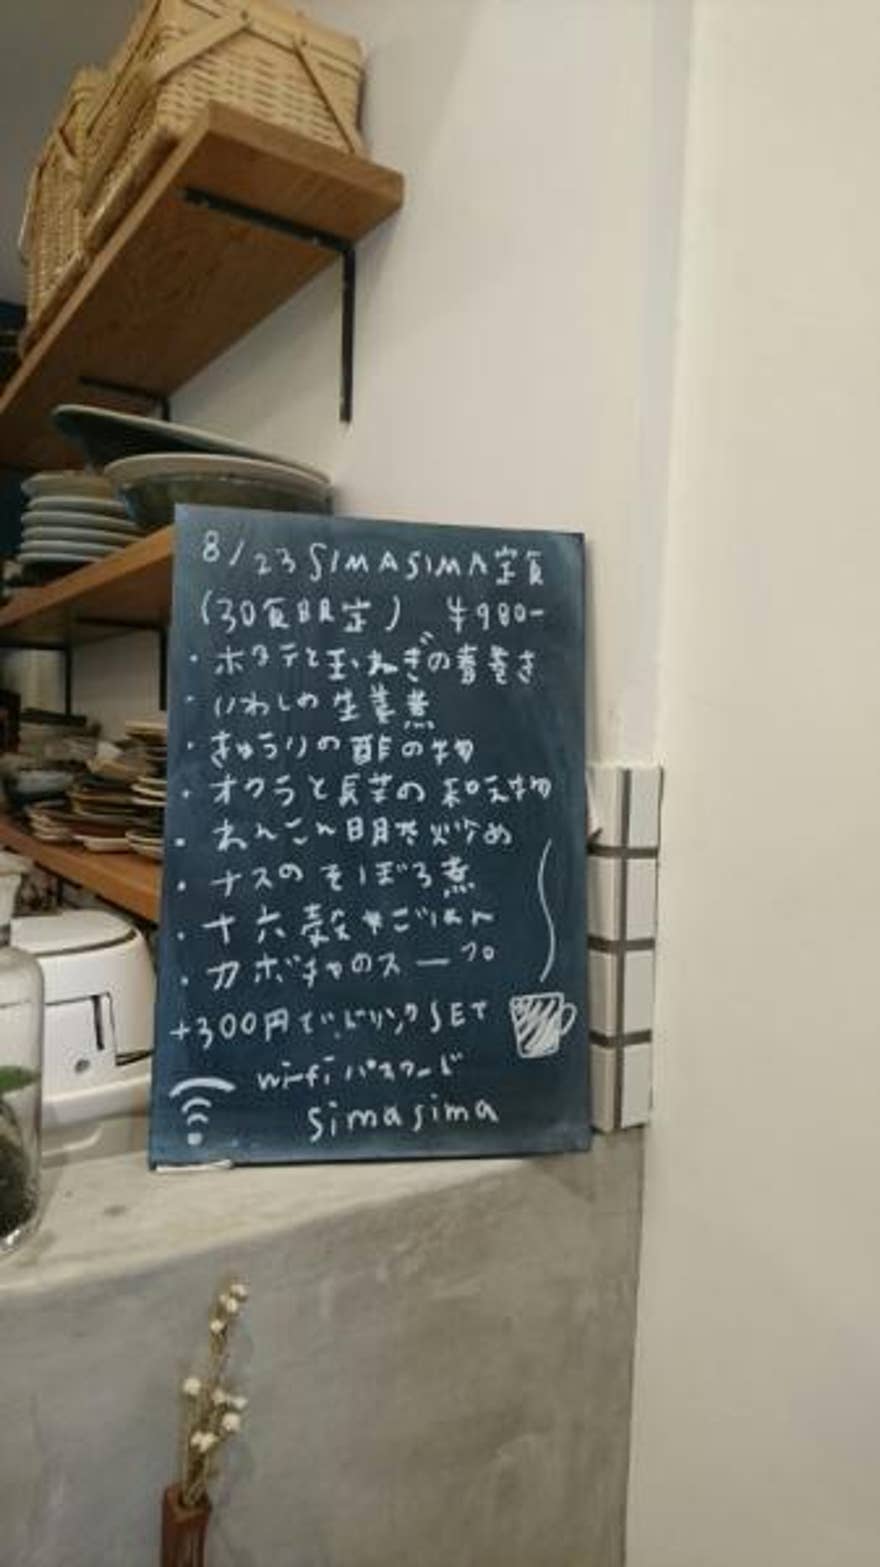 8/23 SIMASIMA定食
(30食限定) ¥980-
・ホタテと玉ねぎの春巻き
・いわしの生姜煮
・きゅうりの酢の物
・オクラと長芋の和え物
・れんこん明太炒め
・ナスのそぼろ煮
・十六穀米ごはん
・カボチャのスープ
+300円でドリンクSET
wifiパスワード
simasima